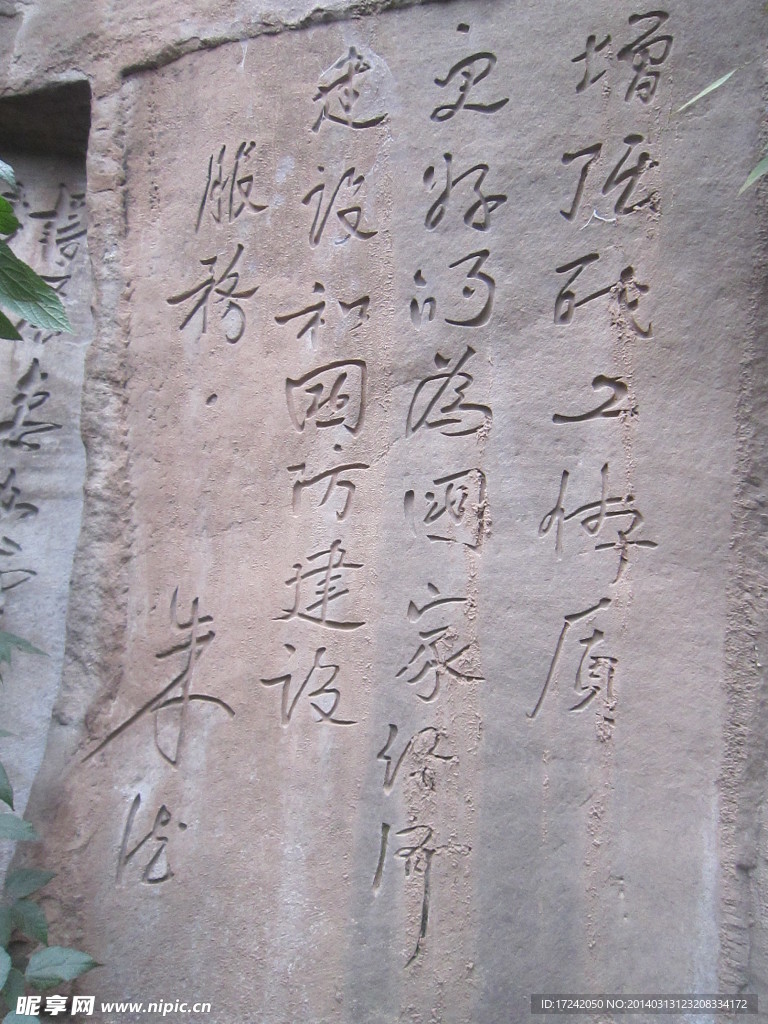 增强职工体质
更好的為國家经济
建设和國防建设
服務.
朱德
昵享网 www.nipic.cn
ID:17242050 NO:20140313123208334172